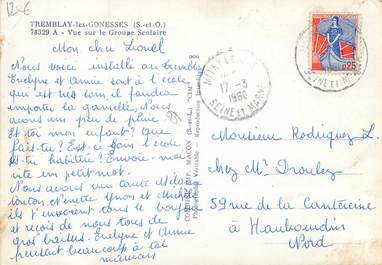 12 €
TREMBLAY-les-GONESSES (S.-et-O.)
74329 A - Vue sur le Groupe Scolaire
Mon cher Lionel
Nous voici installé au tremblay
Evelyne et Annie sont à l'école
qui est très loin, il faudra
emporter la gamelle, Nous
avons un peu de pluie
Et toi mon enfant? que
fais-tu? Es-ce bon l'école,
et tu habitué? Envoie-moi
vite un petit mot.
Nous avons vu tante
tonton, Nénette Yvon et Michèle
ils t'envoient tous le bonjour
et reçois de nous tous de
gros baisers Evelyne et Annie
pensent beaucoup à toi
maman
COMBIER IMP. MACON (S.-et-L.) "CIM"
Photographie Véritable - Reproduction
MITRY LE
17-3
1960
SEINE ET MARNE
0,25
SEINE ET MARNE
Monsieur Rodriguez L.
chez Mr Droulez
59 rue de la Cantereine
à Haubourdin
Nord